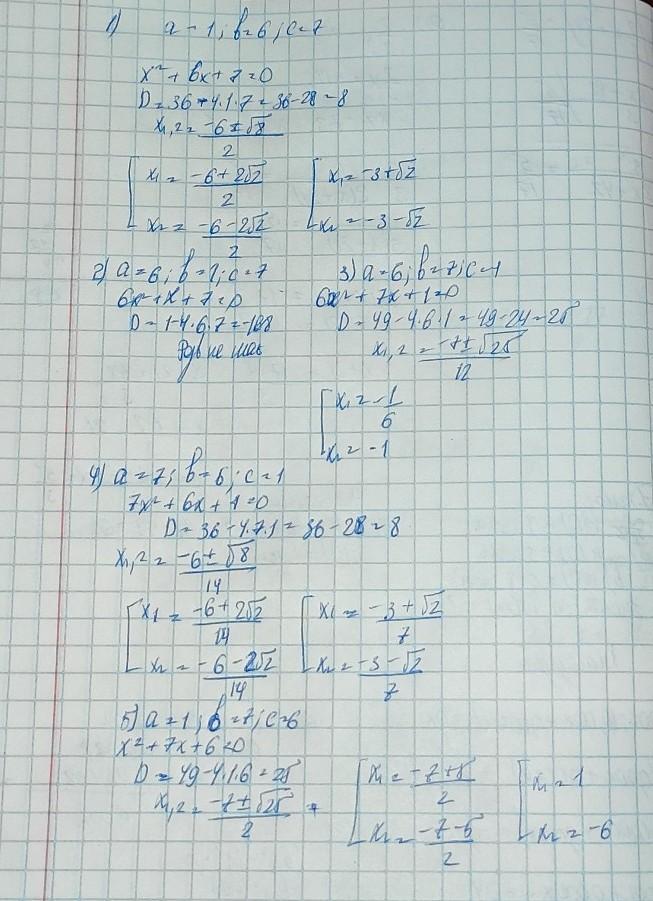 1) a=1; b=6; c=7
x²+6x+7=0
D=36-4·1·7=36-28=8
x₁,₂=(-6±√8)/2
[x₁=(-6+2√2)/2 [x₁=-3+√2
[x₂=(-6-2√2)/2 [x₂=-3-√2
2) a=6; b=1; c=7
6x²+x+7=0
D=1-4·6·7=-168
3) a=6; b=7; c=1
6x²+7x+1=0
D=49-4·6·1=49-24=25
x₁,₂=(-7±√25)/12
[x₁=-1/6
[x₂=-1
4) a=7; b=6; c=1
7x²+6x+1=0
D=36-4·7·1=36-28=8
x₁,₂=(-6±√8)/14
[x₁=(-6+2√2)/14 [x₁=(-3+√2)/7
[x₂=(-6-2√2)/14 [x₂=(-3-√2)/7
5) a=1; b=7; c=6
x²+7x+6=0
D=49-4·1·6=25
x₁,₂=(-7±√25)/2
[x₁=(-7+5)/2 [x₁=1
[x₂=(-7-5)/2 [x₂=-6